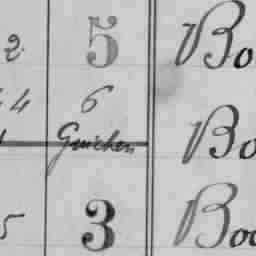 2 5 Bo
4 6
Guichen Bo
5 3 Boo